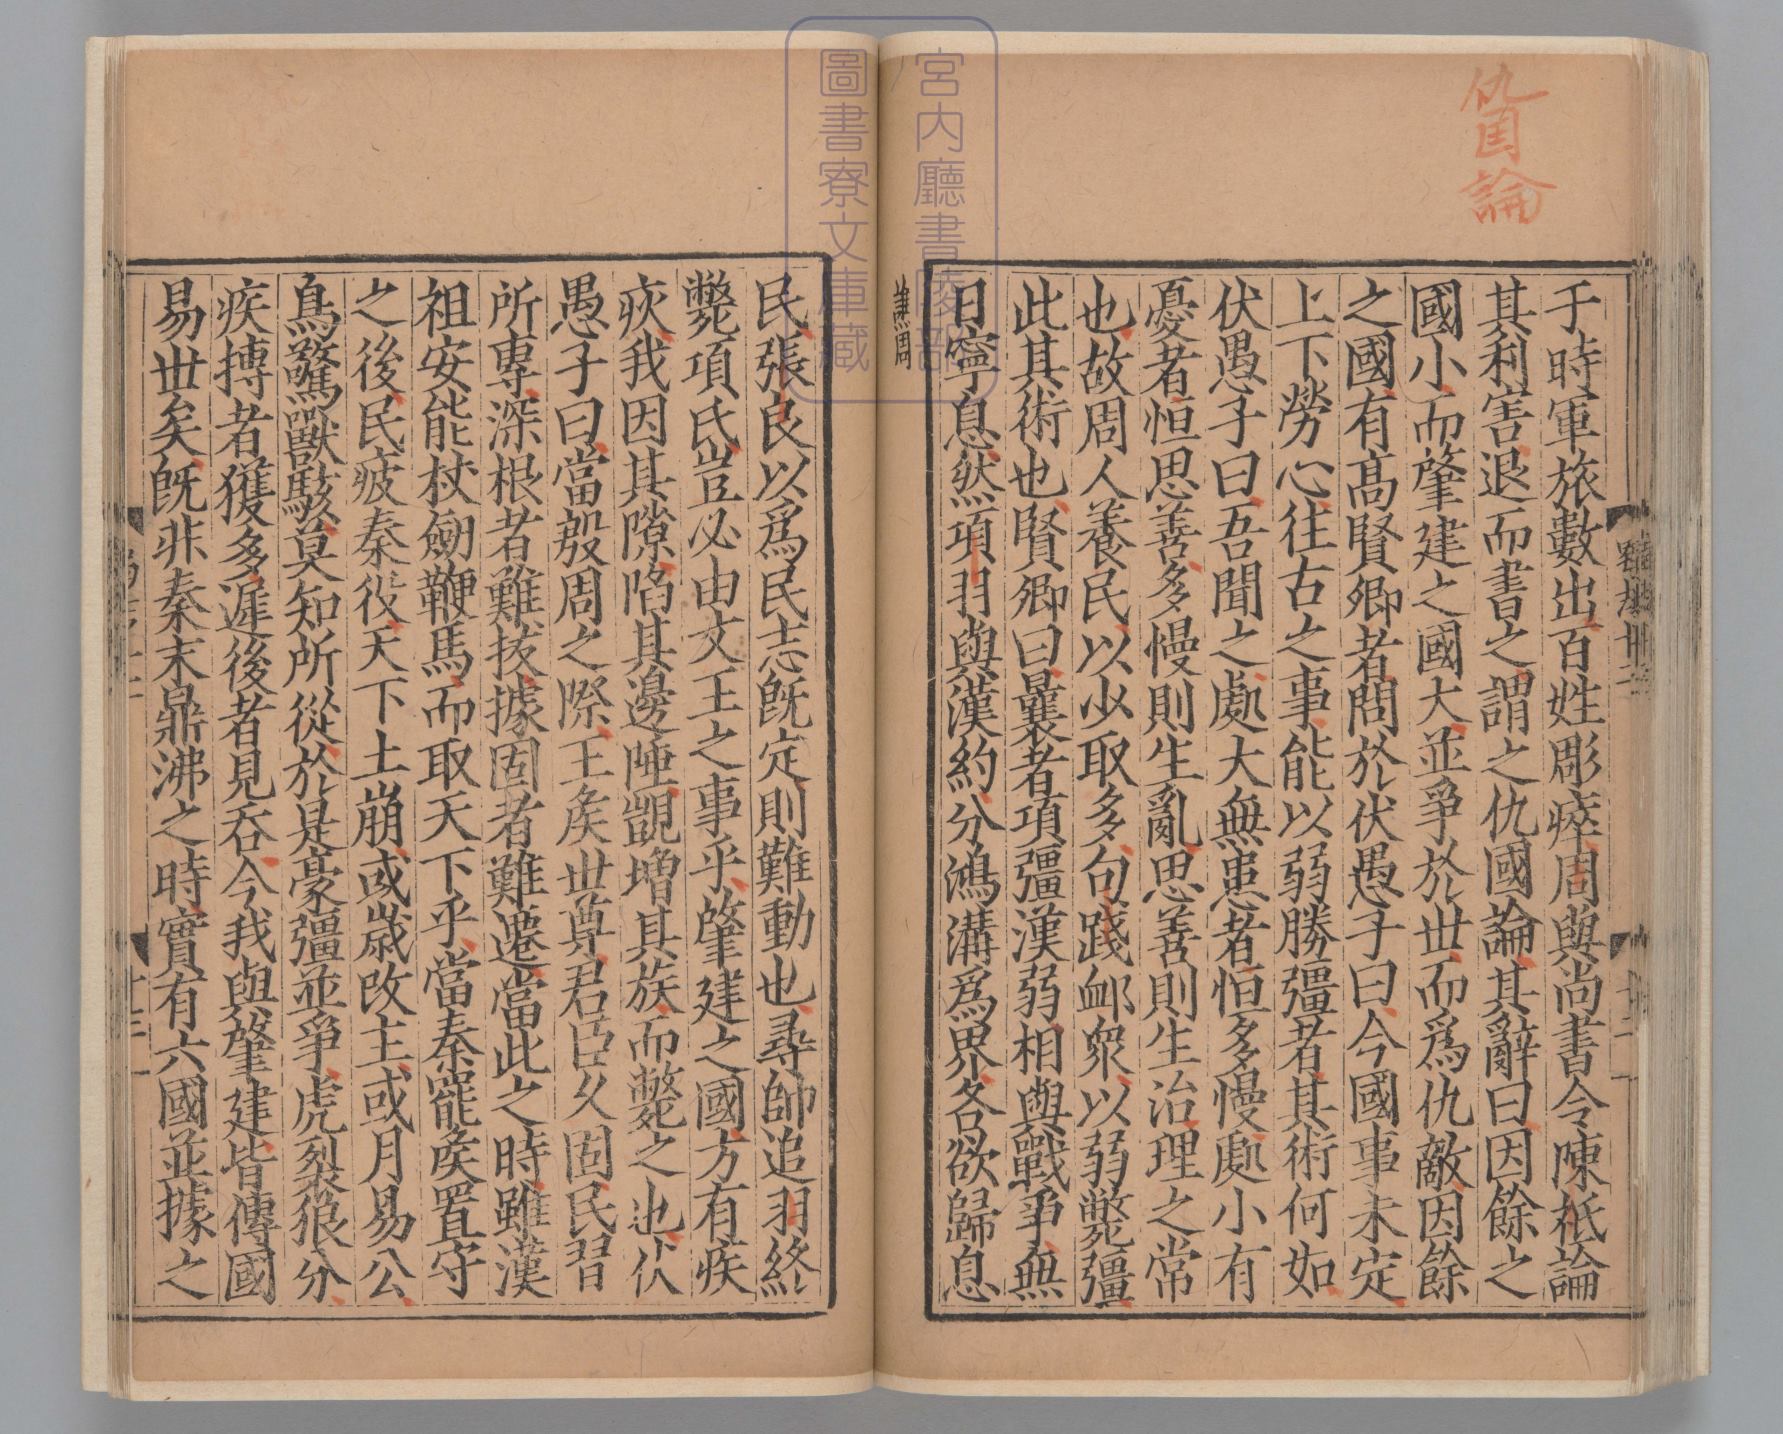 仇国論
于時軍旅數出百姓彫瘁周與尚書令陳祗論
其利害退而書之謂之仇國論其辭曰因餘之
國小而肇建之國大並爭於世而爲仇敵因餘
之國有髙賢卿者問於伏愚子曰今國事未定
上下勞心往古之事能以弱勝彊者其術何如
伏愚子曰吾聞之處大無患者恒多慢處小有
憂者恒思善多慢則生亂思善則生治理之常
也故周人養民以少取多句踐衈衆以弱斃彊
此其術也賢卿曰曩者項彊漢弱相與戰爭無
日寧息然項羽與漢約分鴻溝爲界各欲歸息
譙周
民張良以爲民志旣定則難動也尋帥追羽終
斃項氏豈必由文王之事乎肇建之國方有疾
疢我因其隙陷其邊陲覬増其疾而斃之也伏
愚子曰當殷周之際王矦世尊君臣久固民習
所專深根者難拔據固者難遷當此之時雖漢
祖安能杖劒鞭馬而取天下乎當秦罷矦置守
之後民疲秦役天下土崩或歲改主或月易公
鳥驚獸駭莫知所從於是豪彊並爭虎裂狼分
疾搏者獲多遲後者見吞今我與肇建皆傳國
易世矣旣非秦末鼎沸之時實有六國並據之
宮内廳書陵部
圖書寮文庫藏